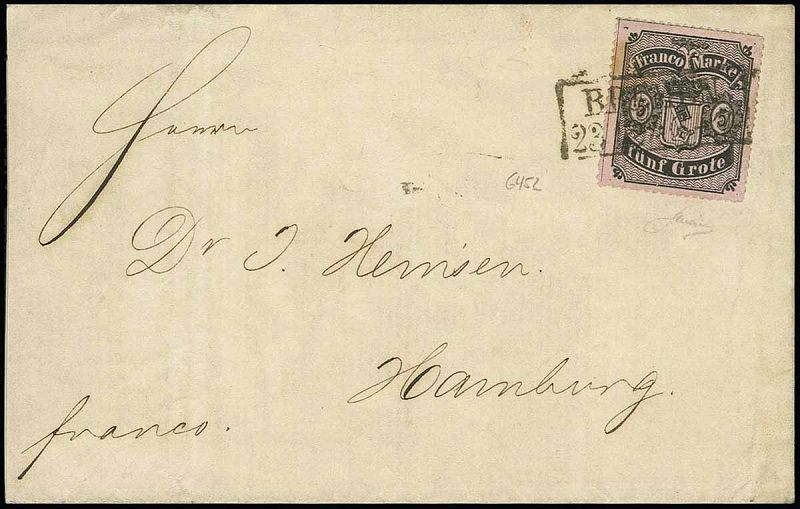 Franco Marke
5 5
fünf Grote
BR
23
6452
Herrn
Dr J. Hemsen.
Hamburg.
franco.